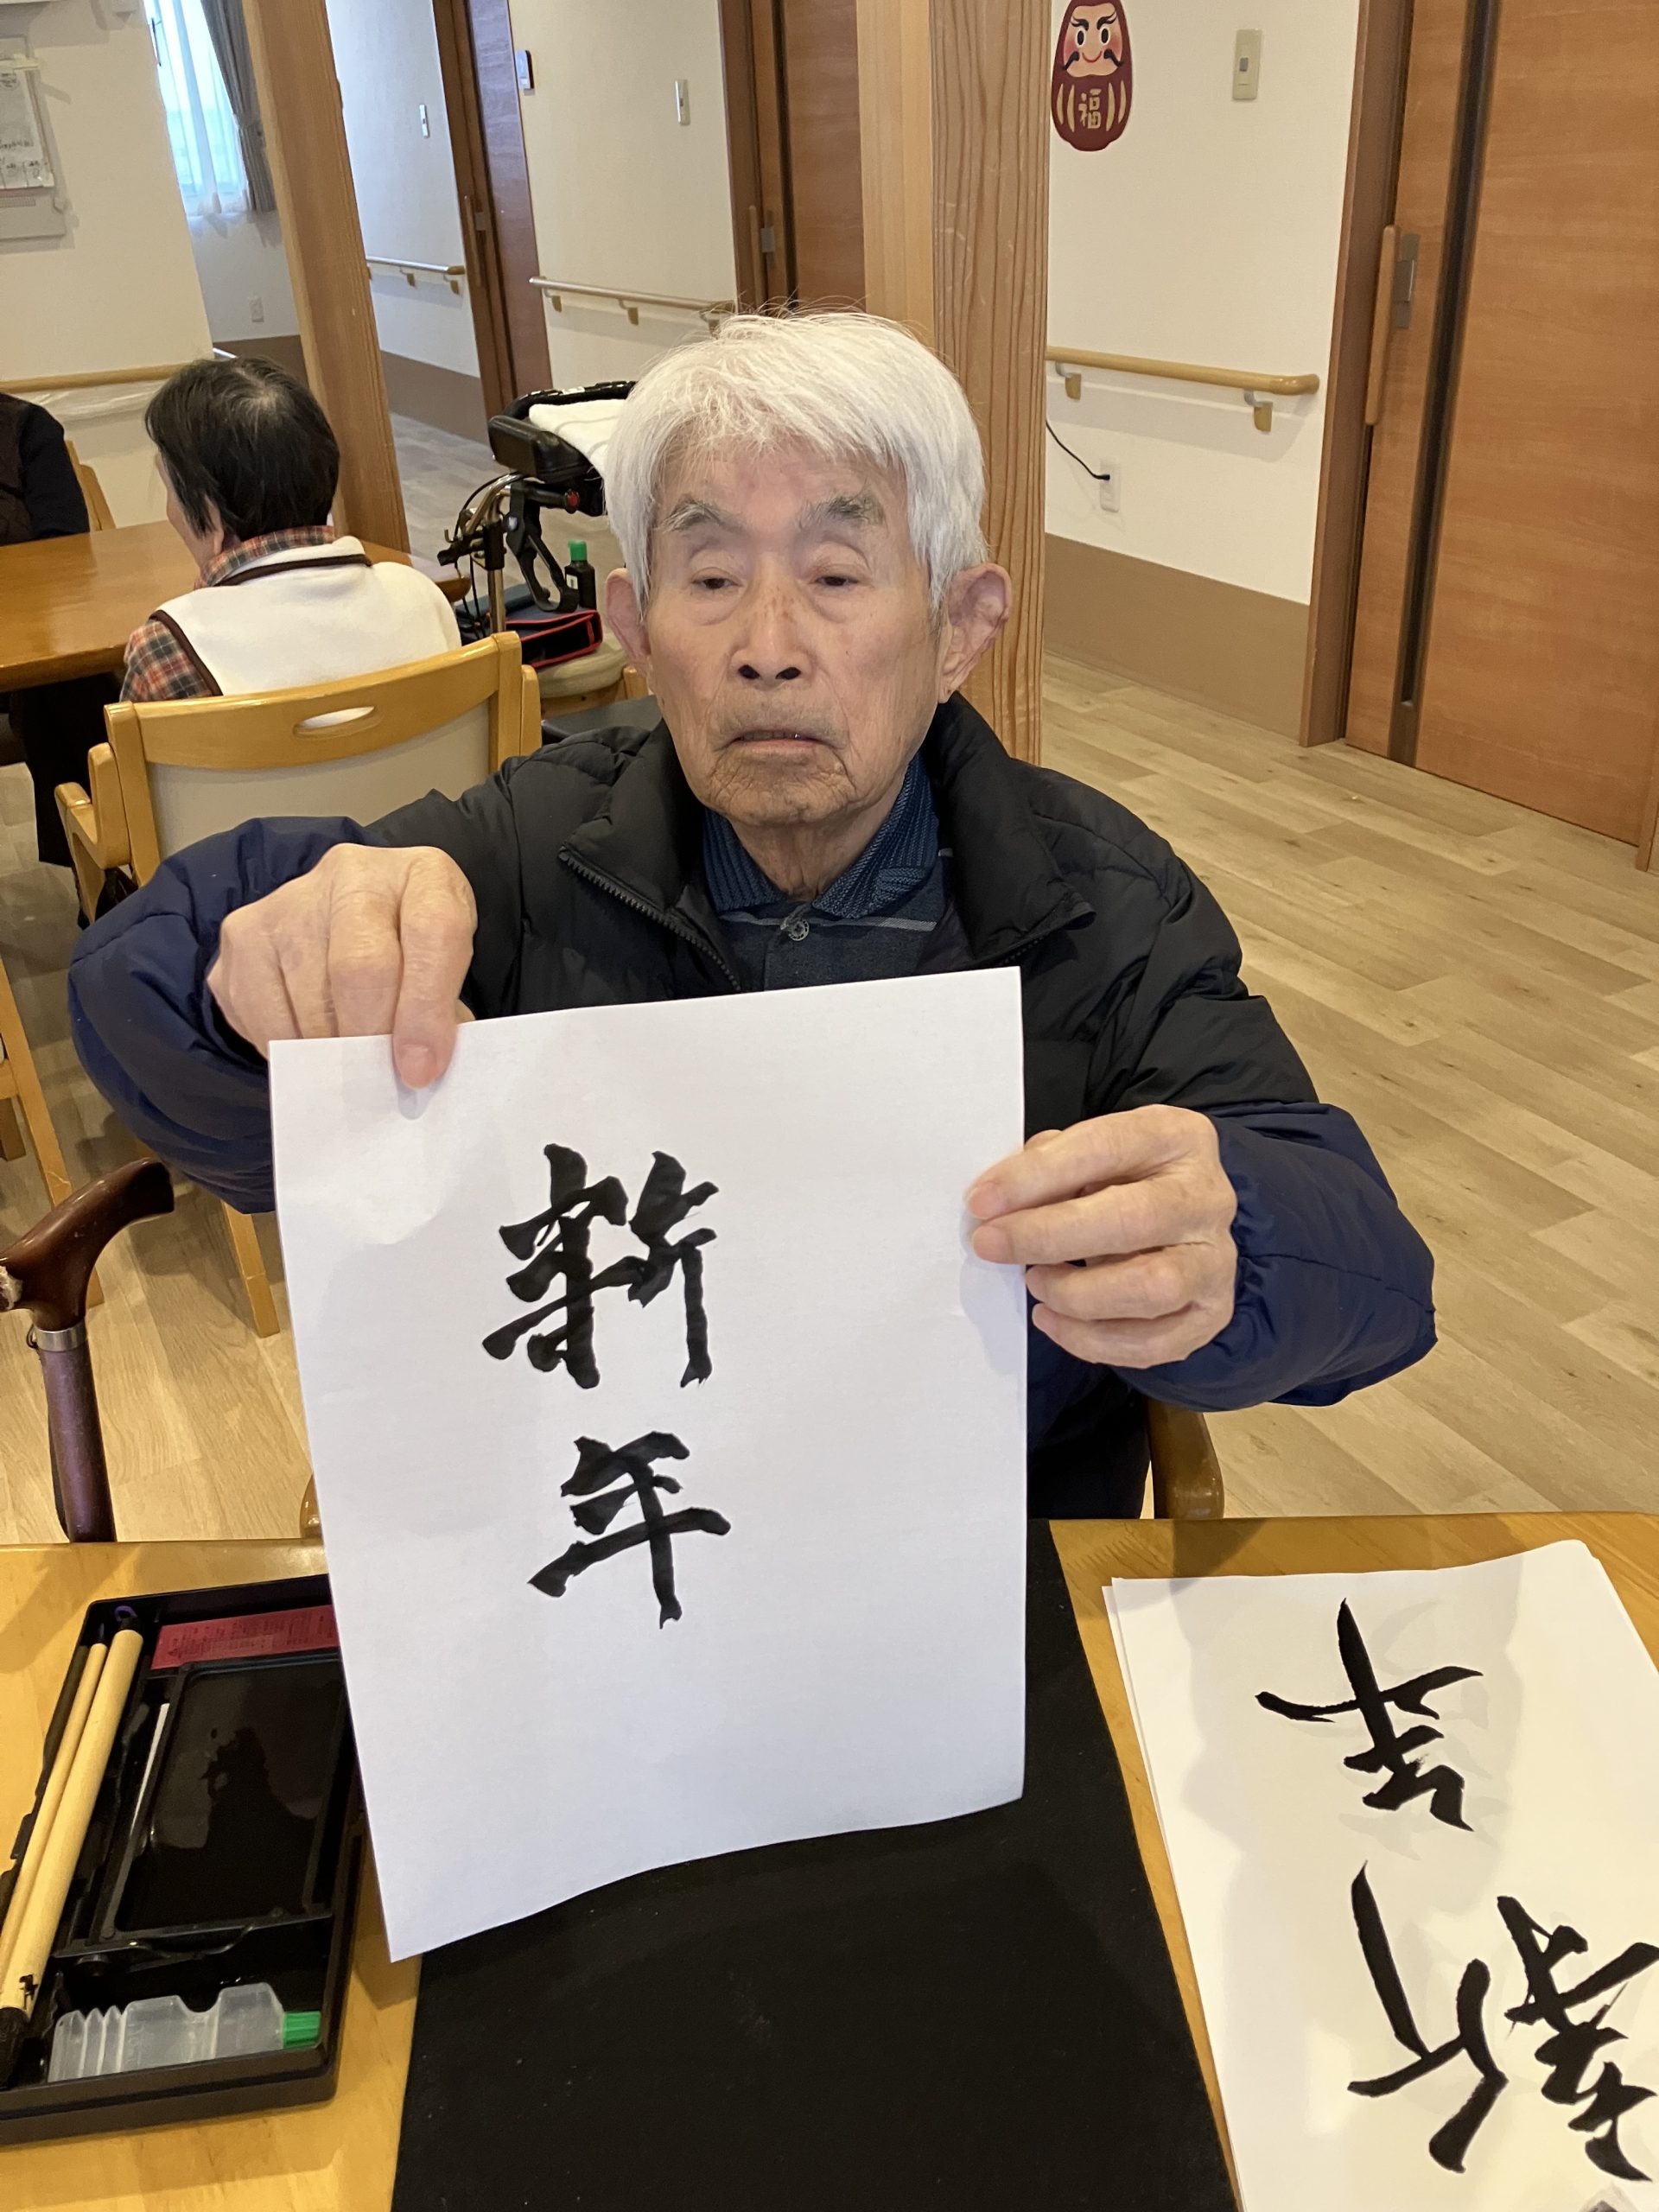 福
新
年
新
年